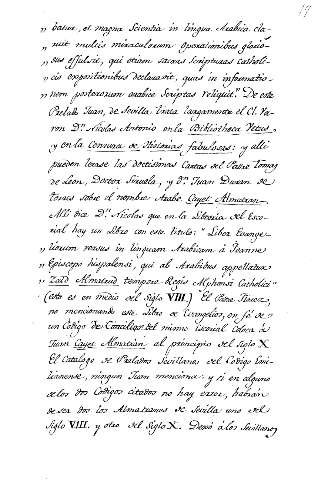 17
„ basur, et magna Scientia in lingua Arabica cla-
„ ruit multis miraculorum operationibus glorio-
„ sus effulsit, qui etiam sacras Scripturas catholi-
„ cis expositionibus declaravit, quas in informatio-
„ nem posterorum arabice scriptas reliquit." De este
Prelado Juan, de Sevilla trata largamente el Cl. Va-
ron Dn. Nicolas Antonio en la Bibliotheca Vetus,
y en la Censura de Historias fabulosas: y alli
pueden verse las doctissimas Cartas del Padre Tomas
de Leon, Doctor Siruela, y Dn. Juan Duran se
sobre el nombre Arabe Cayet Almatran.
Alli dice Dn. Nicolas que en la Libreria del Esco-
rial hay un Libro con este titulo: "Liber Evange-
„ liorum versus in linguam Arabicam à Joanne
„ Episcopo hispalensi, qui ab Arabibus appellatur
„ Zaid Almatrud, tempore Regis Alphonsi Catholici"
(esto es en medio del Siglo VIII.) El Padre
no mencionando este Libro de Evangelios, en fe de
un Codigo de Concilios del mismo Escorial coloca à
Juan Cayet Almatran al principio del Siglo X.
El Catalogo de Prelados Sevillanos del Codigo Emi-
lianense, ningun Juan menciona: y si en alguno
de los dos Codigos citados no hay error, habran
de ser dos los Almatranes de Sevilla uno del
Siglo VIII. y otro del Siglo X. Dexó à los Sevillanos